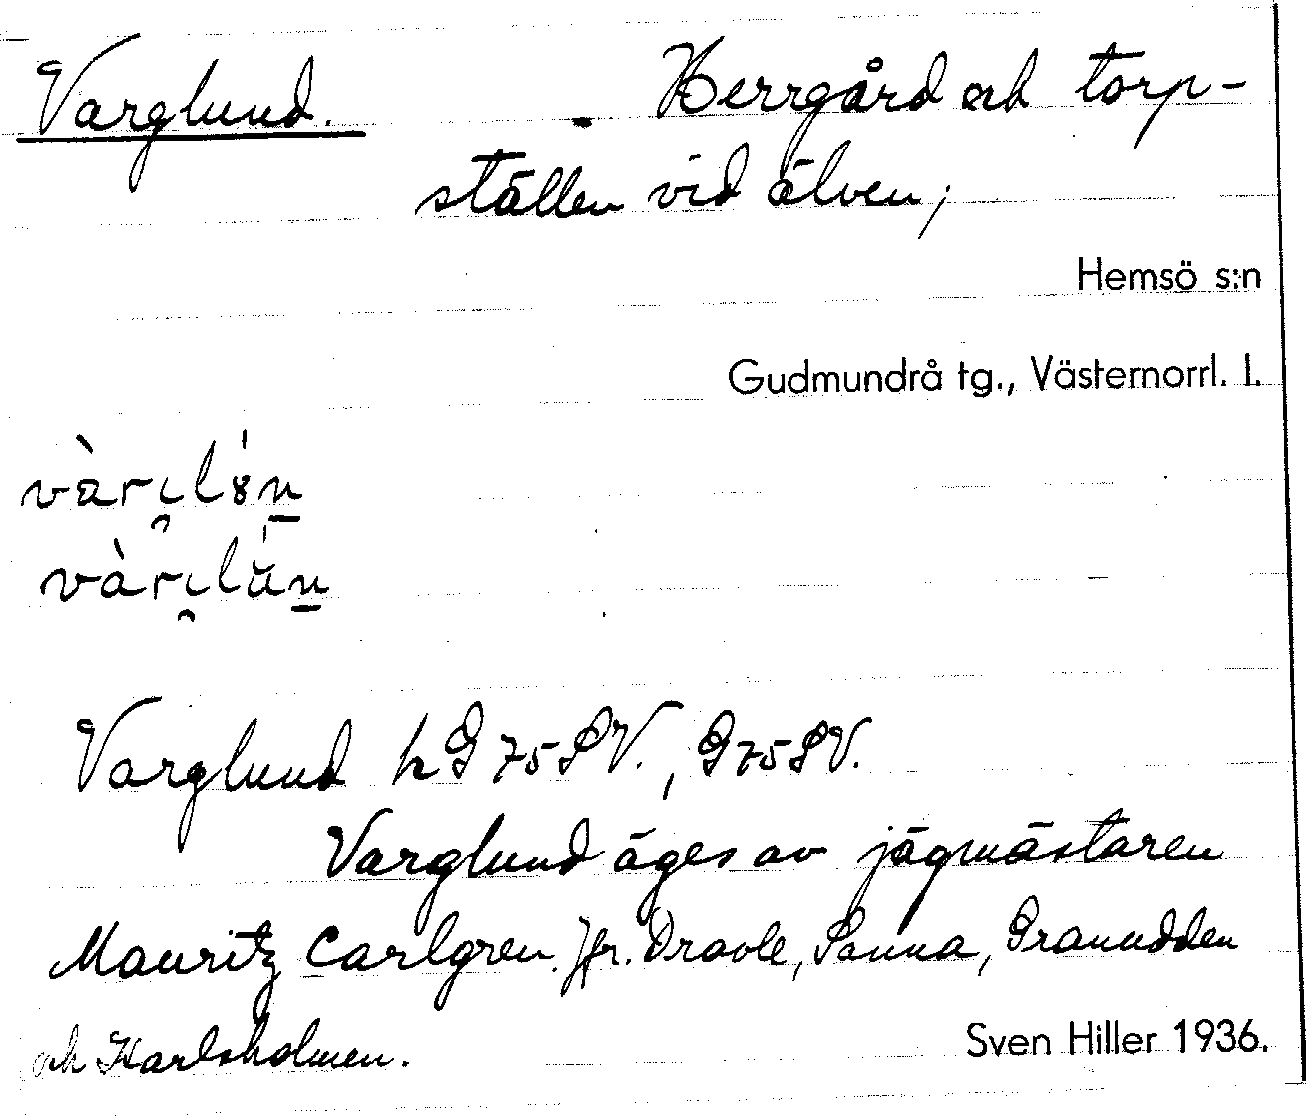 Varglund. - Herrgård och torp-
ställen vid älven;
Hemsö s:n
Gudmundrå tg., Västernorrl. l.
Varglund h G 75 SV., G 75 SV.
Varglund äges av jägmästaren
Mauritz Carlgren. Jfr. Dravle, Sanna, Granudden
och Karlsholmen.
Sven Hiller 1936.